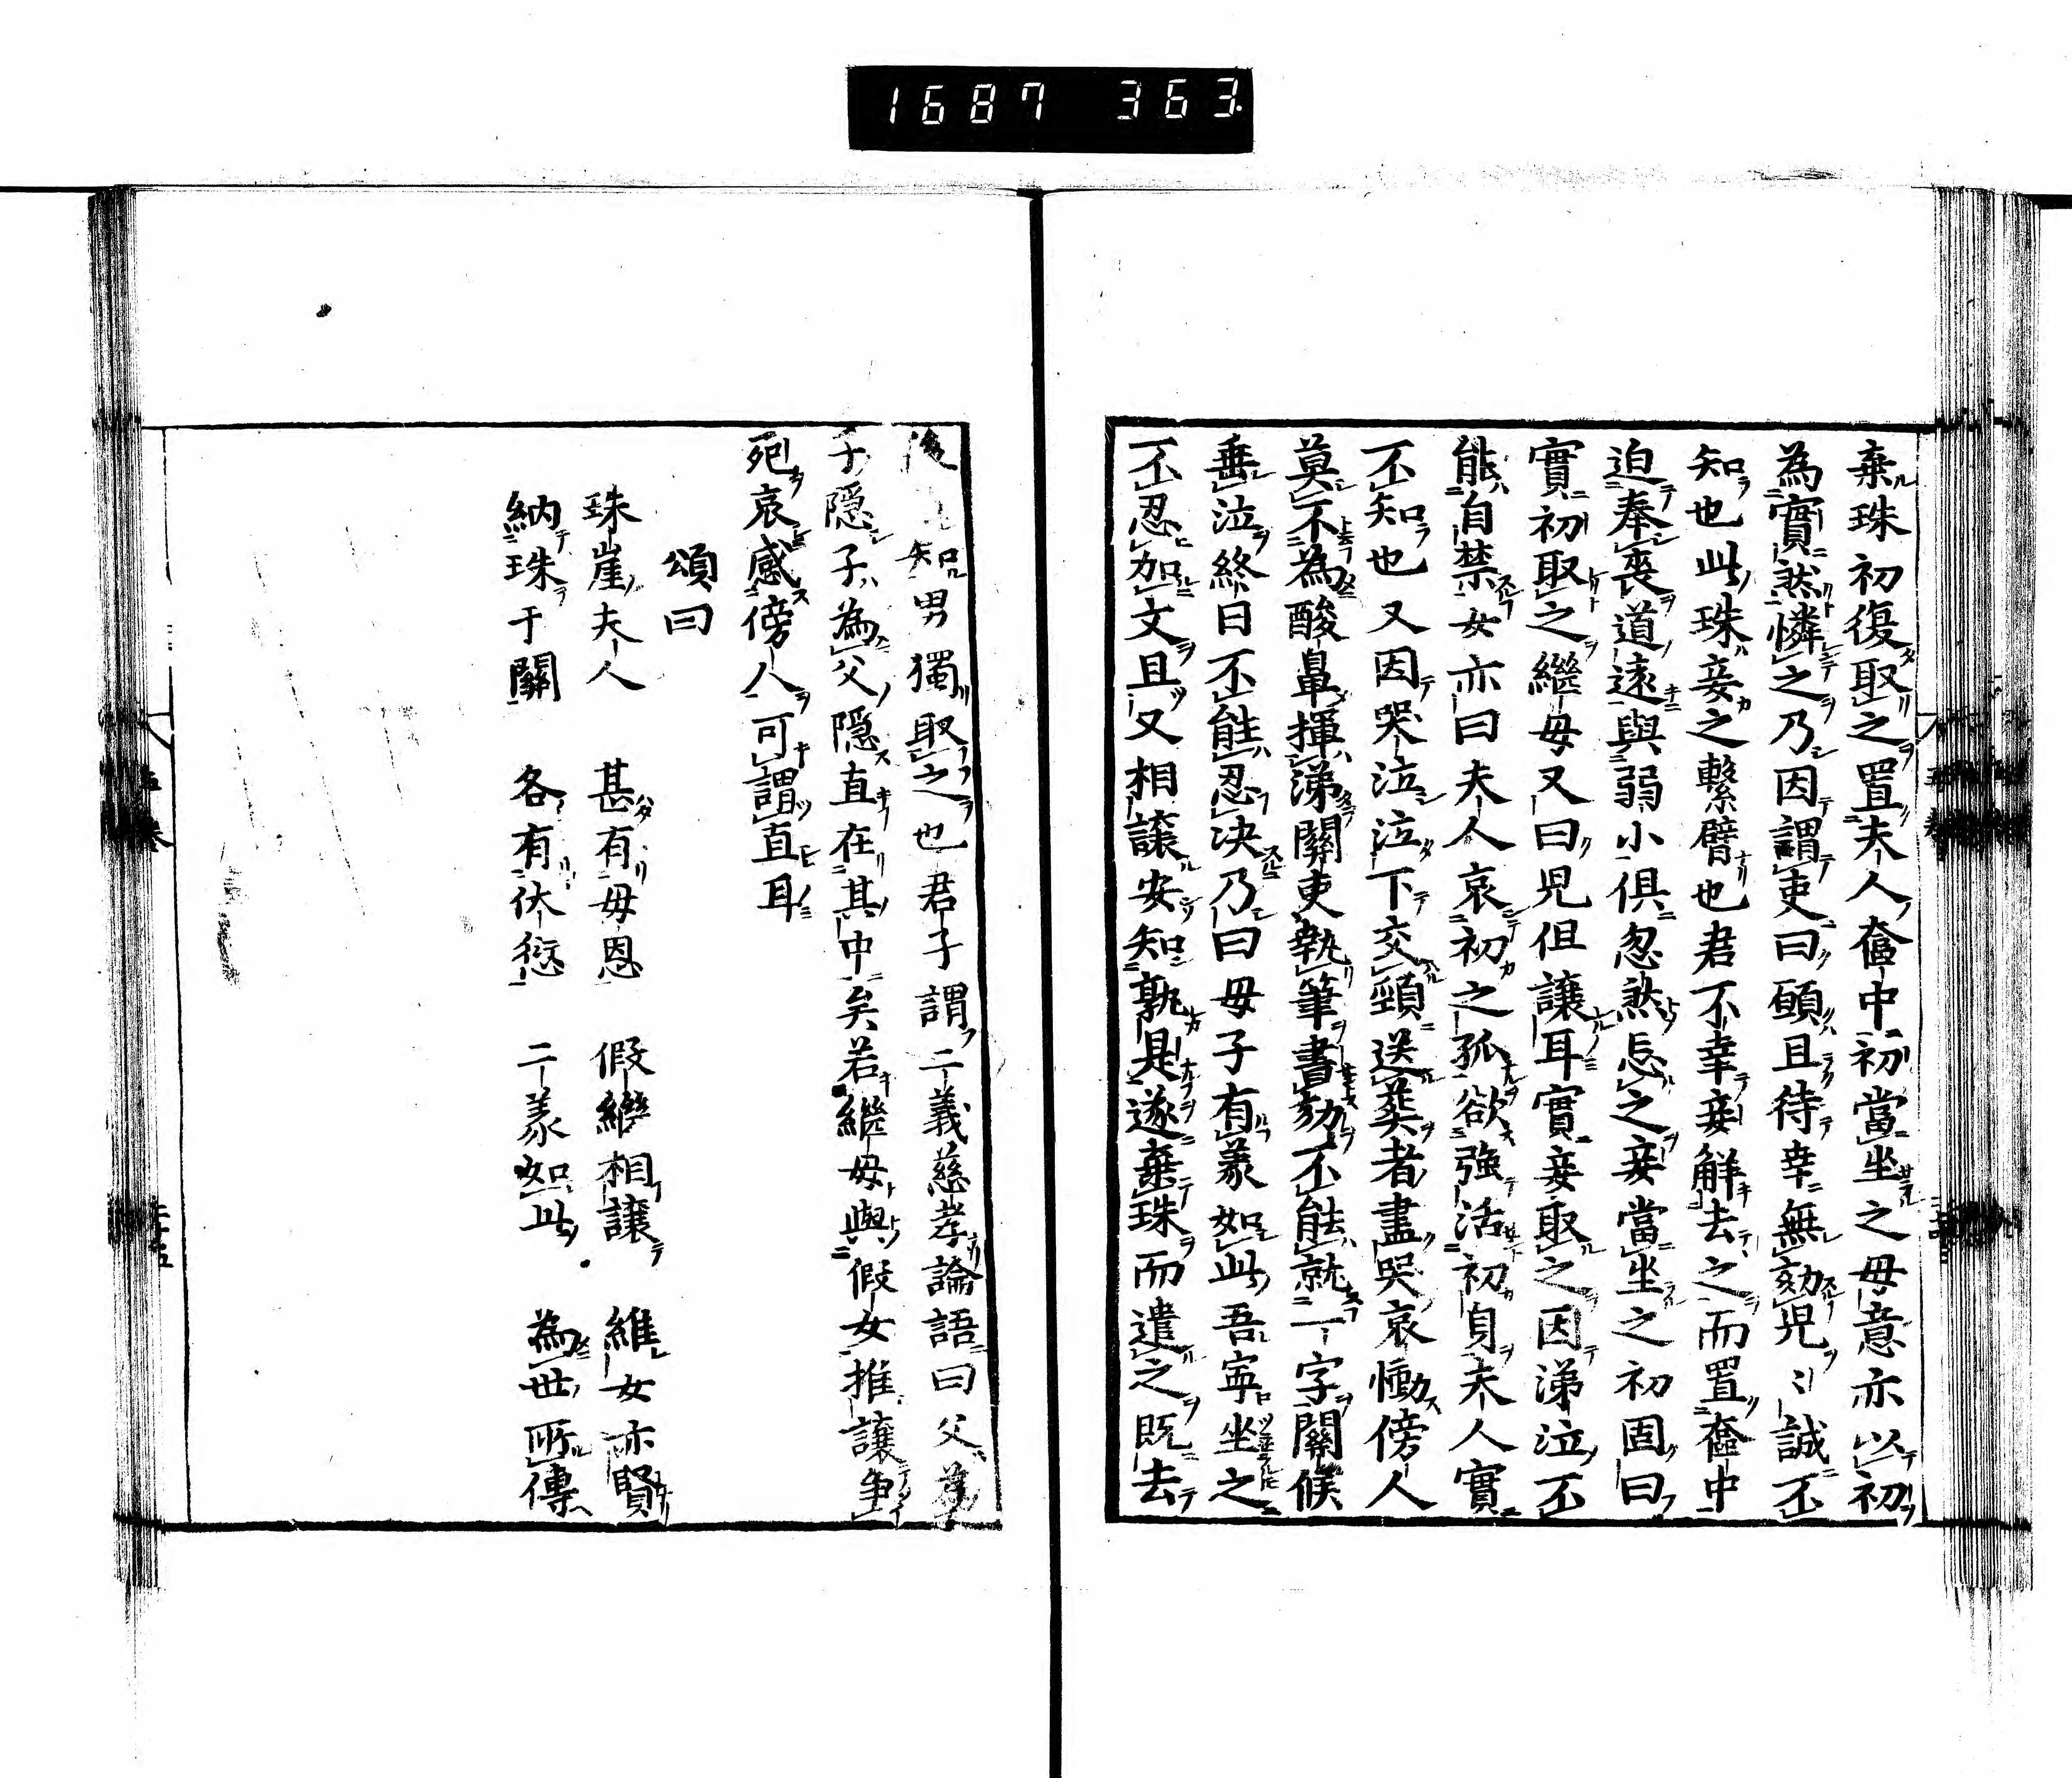 1687 363
棄珠初復取之置夫人奩中初當坐之母意亦以初
為實然憐之乃因謂吏曰願且待幸無劾兒〻誠不
知也此珠妾之繫臂也君不幸妾解去之而置奩中
迫奉喪道遠與弱小俱忽然忘之妾當坐之初固曰
實初取之繼母又曰兒但讓耳實妾取之因涕泣不
能自禁女亦曰夫人哀初之孤欲強活初身夫人實
不知也又因哭泣泣下交頸送葬者盡哭哀慟傍人
莫不為酸鼻揮涕關吏執筆書劾不能就一字關候
垂泣終日不能忍決乃曰母子有義如此吾寧坐之
不忍加文且又相讓安知孰是遂棄珠而遣之既去
後 知男獨取之也君子謂二義慈孝論語曰父為
子隱子為父隱直在其中矣若繼母與假女推讓爭
死哀感傍人可謂直耳
頌曰
珠崖夫人 甚有母恩 假繼相讓 維女亦賢
納珠于關 各有伏愆 二義如此 為世所傳